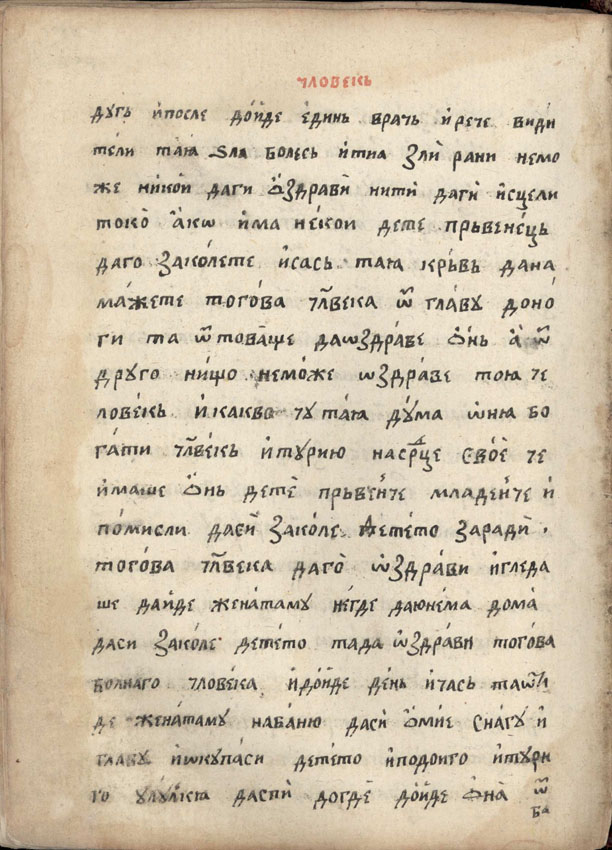 чловекь
дугь ѝпосле до́йде е҆динь врачь ѝрече види
тели таꙗ ѕла болесь ѝтиꙗ ꙁли́ рани немо
же ни́кой даги ѻ҆ꙁдравѝ нити̂ даги̂ и҆сцели
токо̀ а҆кѡ и҆ма не́кои дете прьвене́ць
даго ꙁако́лете и҆сась таꙗ крьвь дана
ма́жете тогѡ́ва чл҃века ѿ гла́ву доно́
ги та ѿтова̀ще даѡꙁдра́ве ѻ҆нь а҆ ѿ
дру́го ни́що неможе ѡꙁдра́ве тоꙗ че
ловекь ѝ какво чу таꙗ ду́ма ѡ҆ниꙗ бо
га́ти чл҃ве́кь ѝтурию насрⷣце своѐ че
ѝмаше ѻ҆нь детѐ прьве́нче младе́нче ѝ
по́мисли даѐй ꙁако́ле детето ꙁаради̂
тогѡва чл҃века даго̀ ѡ҆ꙁдра́ви ѝгледа
ше дай́де жена́таму не́где даюне́ма дома̀
даси ꙁаколе детѐто тада ѡ҆ꙁдра́ви тогова
болнаго чловека, ѝдо́йде день ѝчась таѿи
де жена́таму наба́ню даси̂ ѻ҆ми́е снагу ѝ
главу ѝѡкупа́си дете́то ѝподоиго ѝтури
го улю́лкꙗ даспи̂ догдѐ до́йде ѻ҆на̀ ѿ
ба